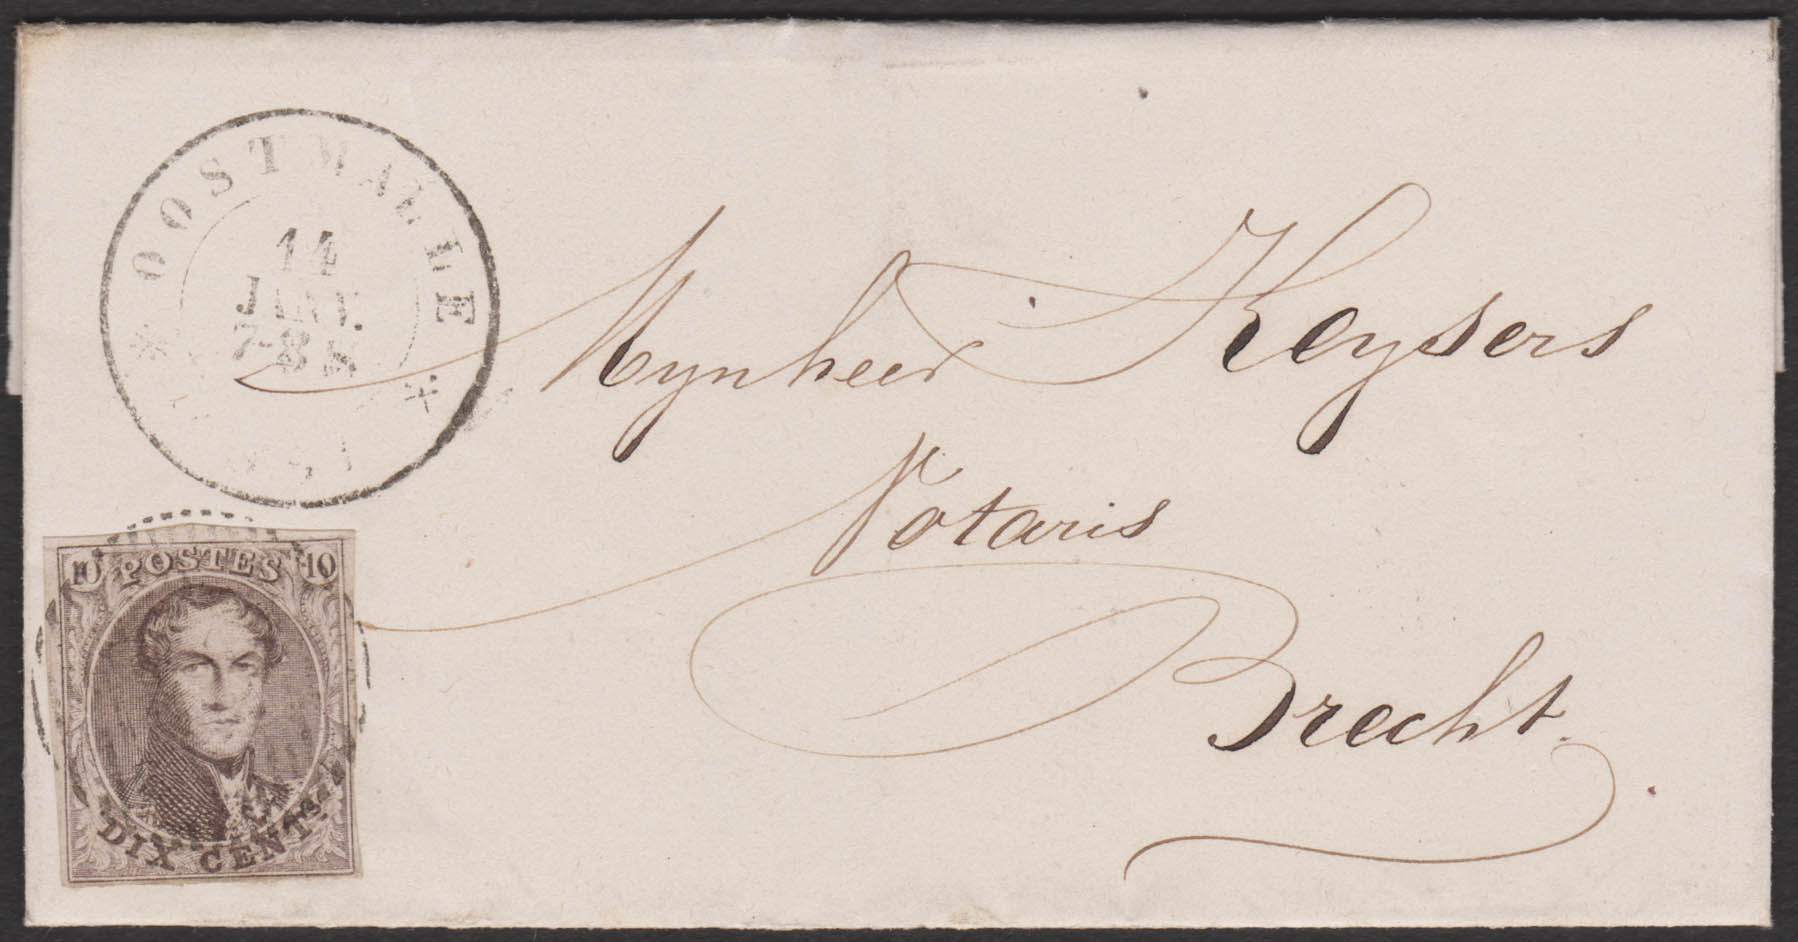 OOSTMALLE
14
JANV.
7-8 M
Mynheer Keysers
Notaris
Brecht.
10 POSTES 10
DIX CENTES